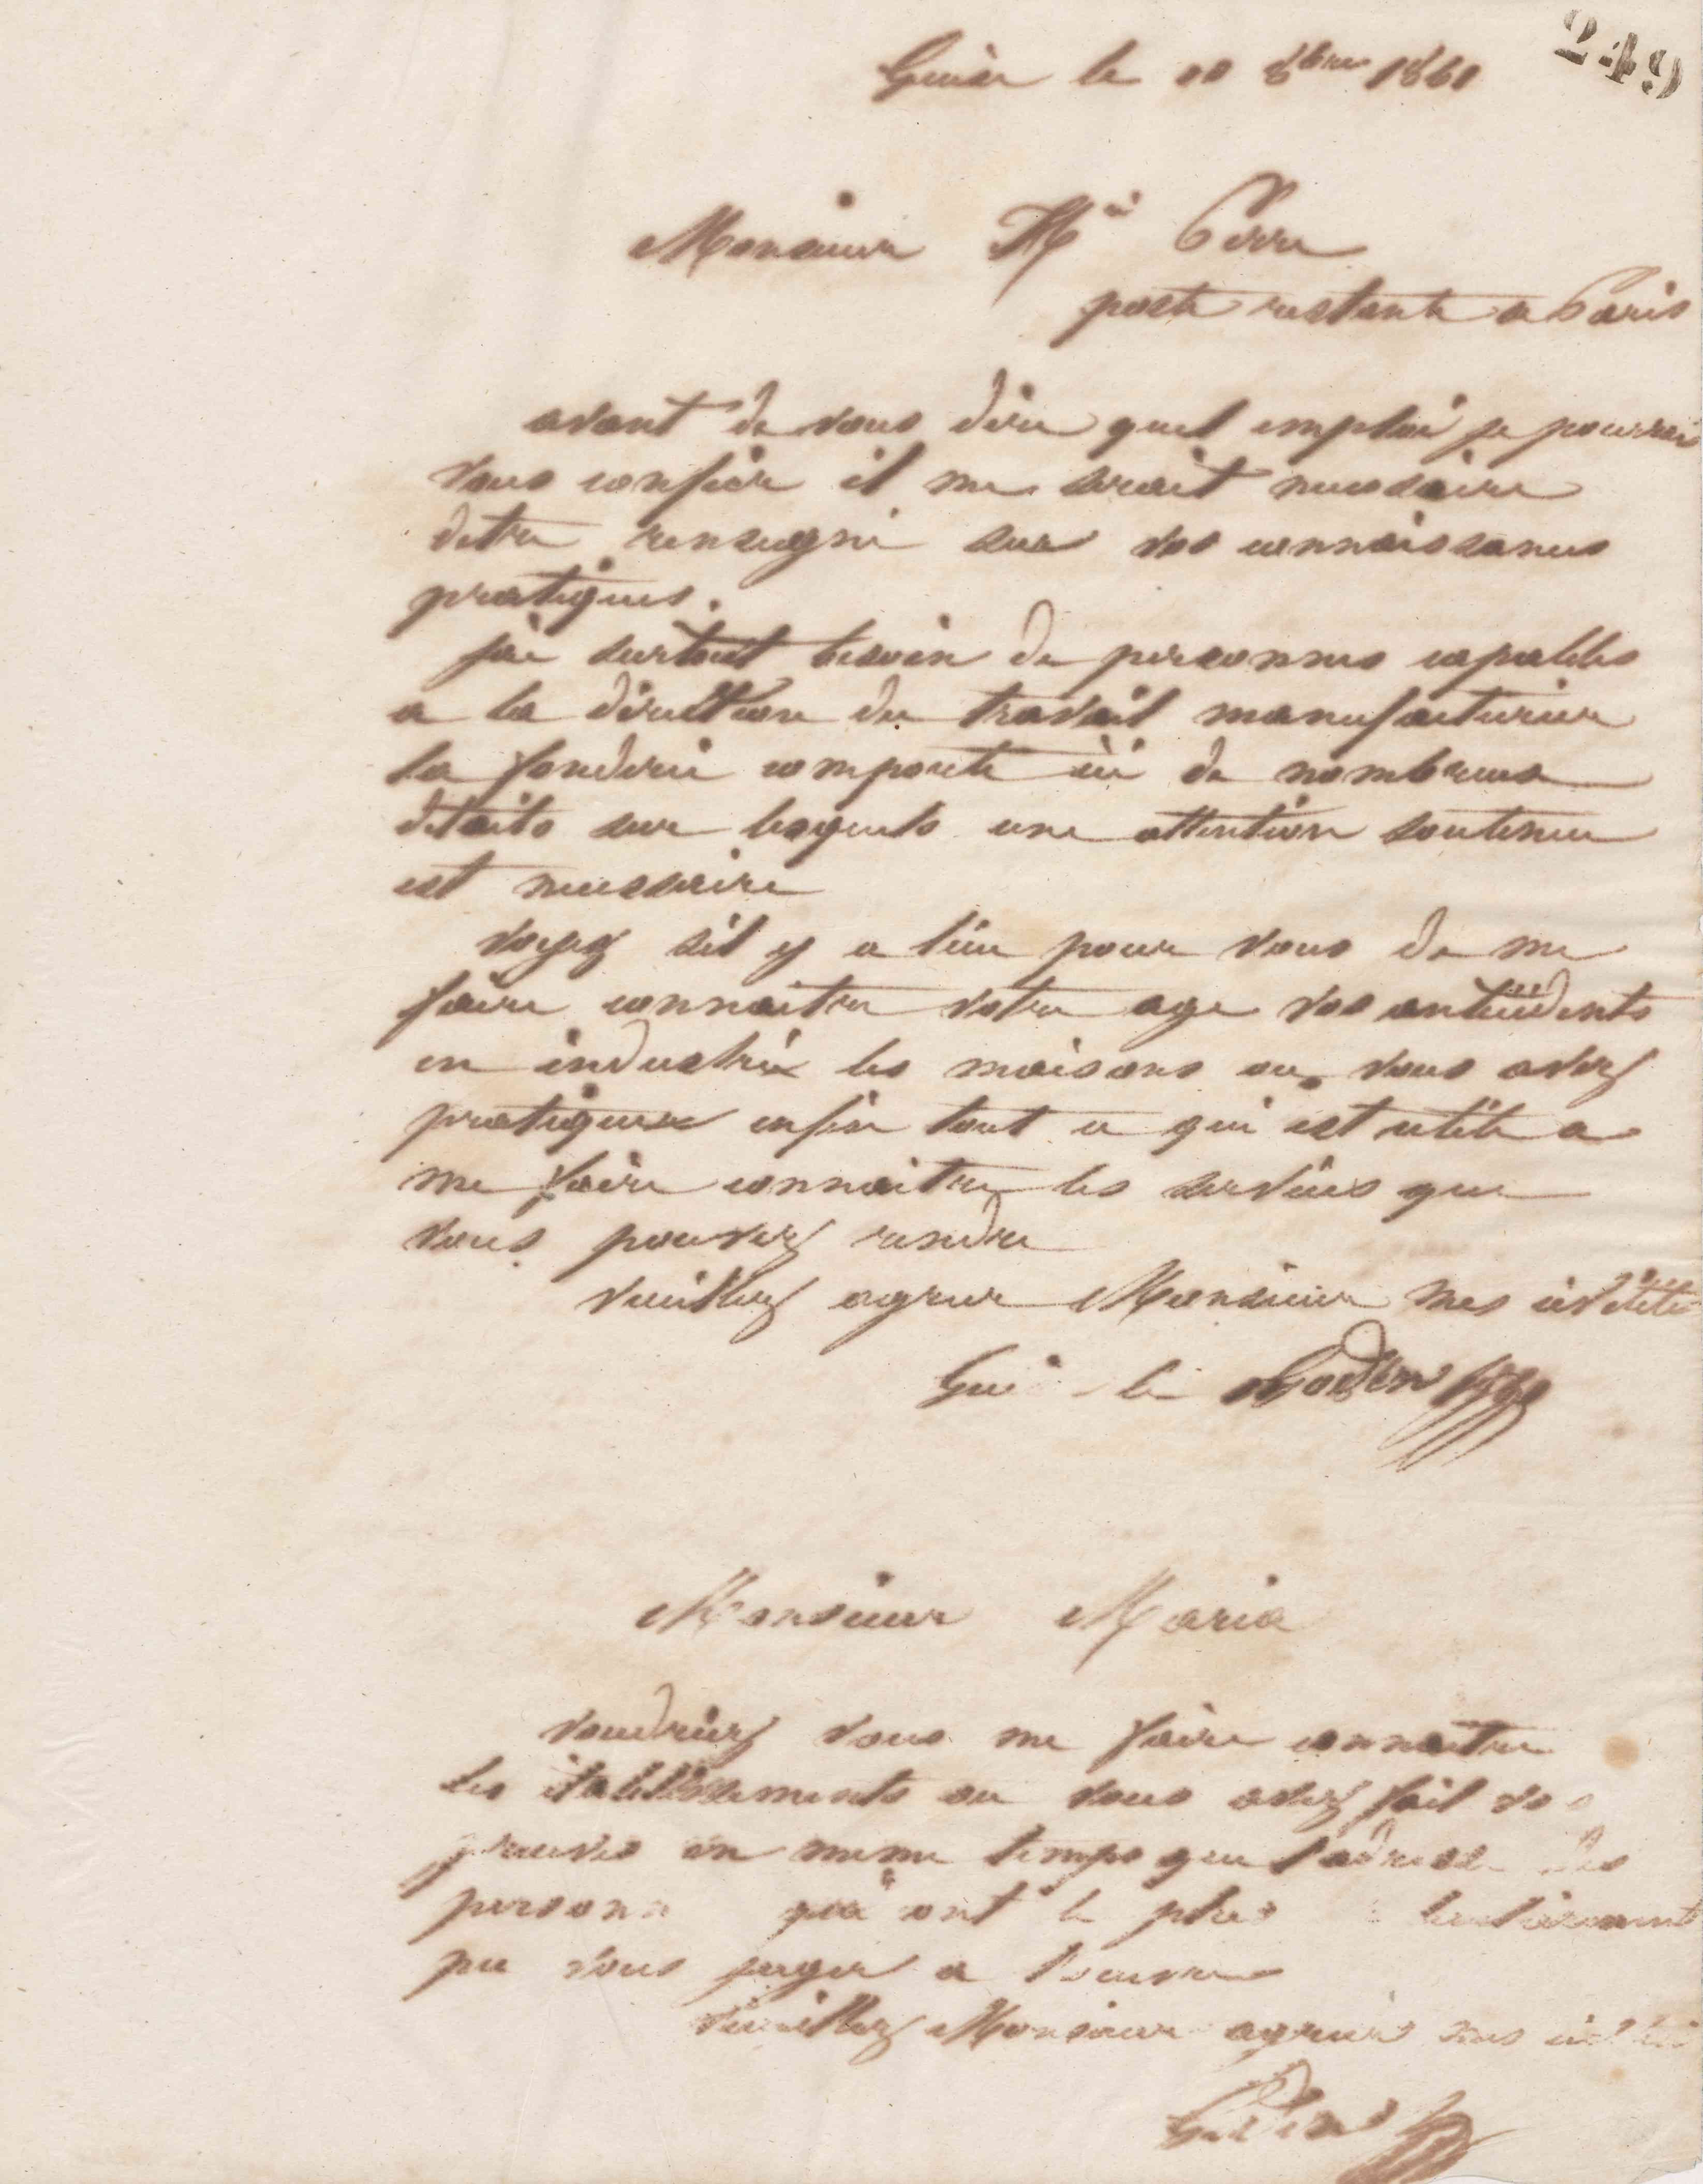 249
Guise le 10 8bre 1861
Monsieur Mii Perre
poste restante a Paris
avant de vous dire quel emploi je pourrai
vous confier il me serait necessaire
detre renseigné sur vos connaissances
pratiques.
jai surtout besoin de personnes capables
a la direction du travail manufacturier
la fonderie comporte ici de nombreux
details sur lesquels une attention soutenue
est necessaire
voyez sil y a lieu pour vous de me
faire connaitre votre age vos antécédents
en industrie les maisons ou vous avez
pratiquer enfin tout ce qui est utile a
me faire connaitre les services que
vous pouvez rendre
veuillez agreer Monsieur mes civilités
Gui le Godin
Monsieur Maria
voudriez vous me faire connaitre
les établissements ou vous avez fait vos
preuves en meme temps que l'adresse des
personn qui ont le plus
pu vous juger a l'oeuvre
Veuillez Monsieur agreer mes
Godin